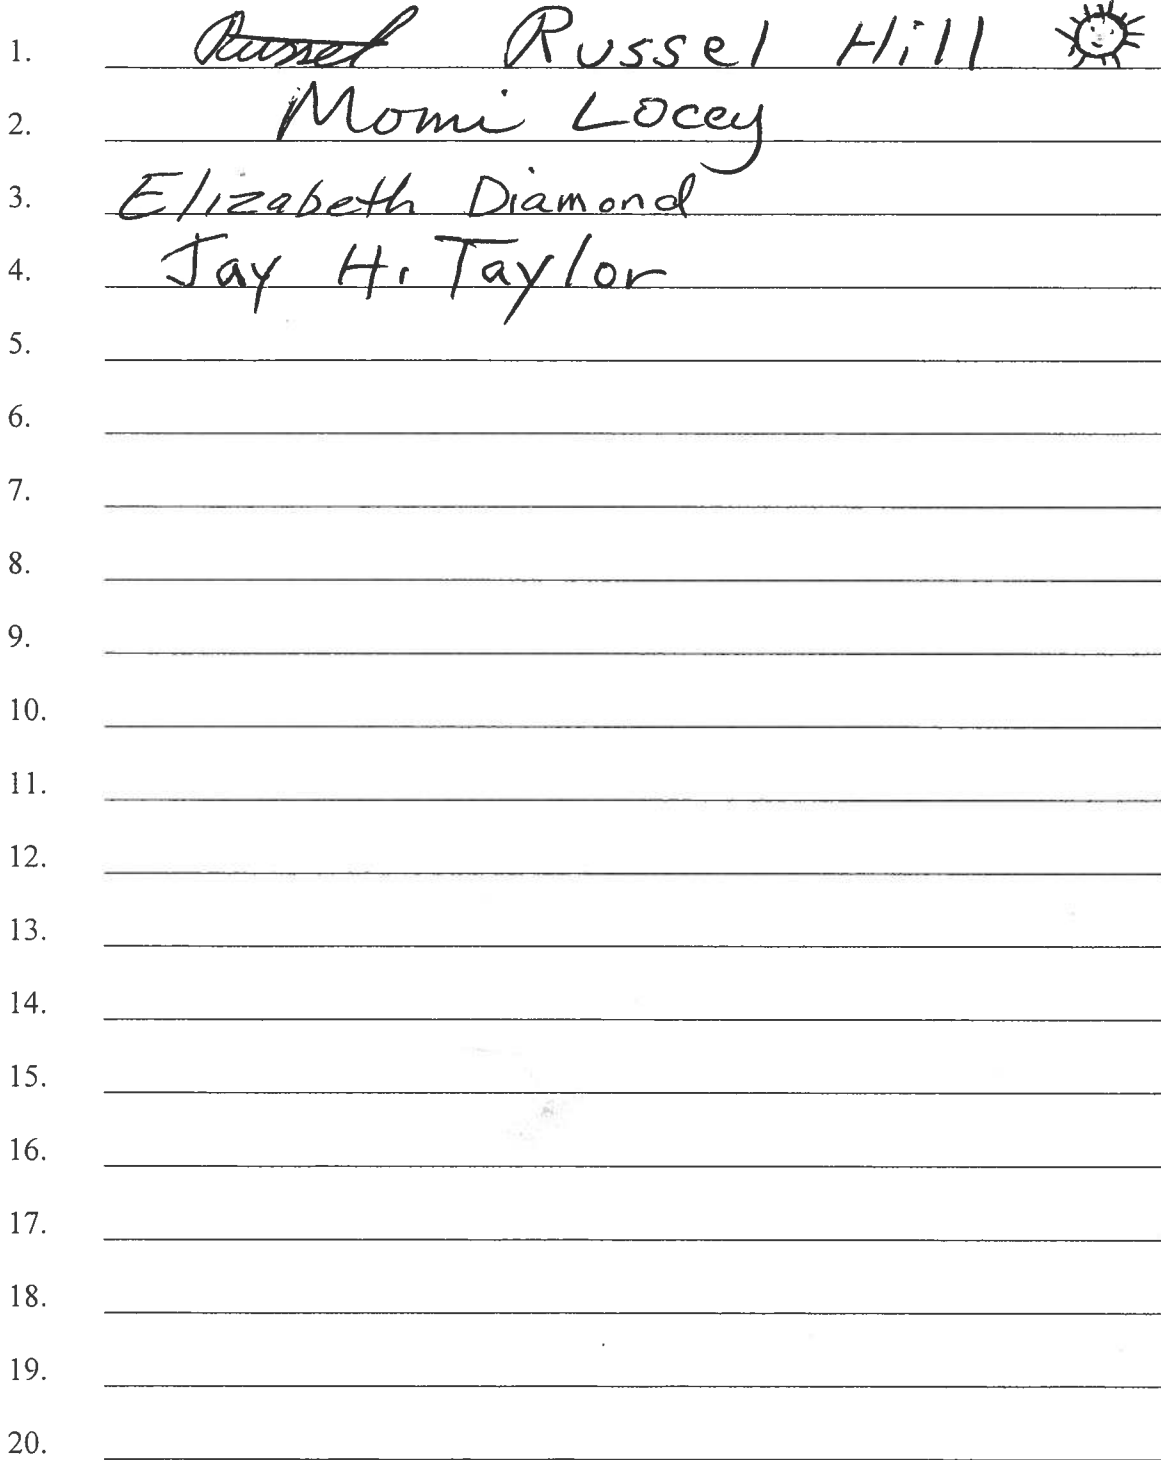 1. Russel Russel Hill
2. Momi Locey
3. Elizabeth Diamond
4. Jay H. Taylor
5.
6.
7.
8.
9.
10.
11.
12.
13.
14.
15.
16.
17.
18.
19.
20.